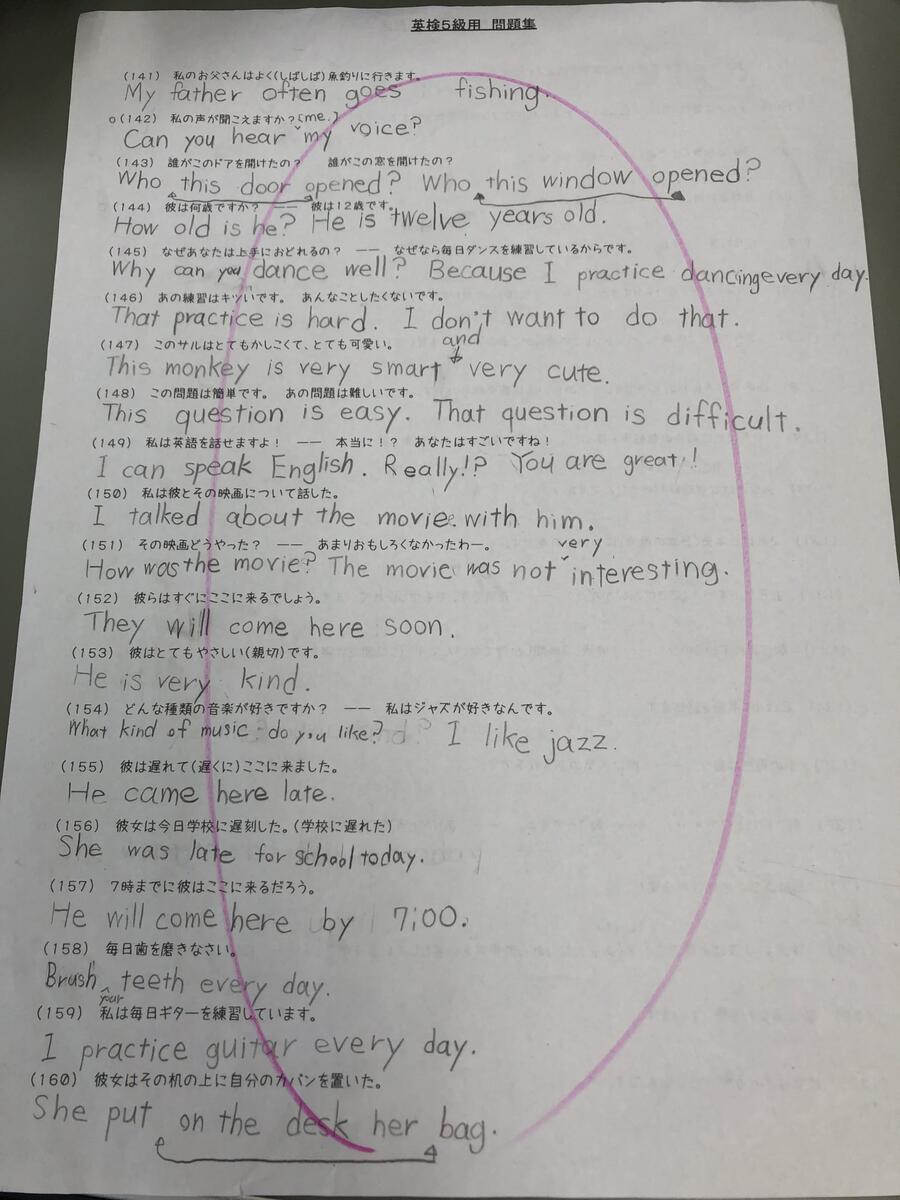 英検5級用 問題集
(141) 私のお父さんはよく(しばしば)魚釣りに行きます。
My father often goes fishing.
o(142) 私の声が聞こえますか?[me.]
Can you hear my voice?
(143) 誰がこのドアを開けたの? 誰がこの窓を開けたの?
Who this door opened? Who this window opened?
(144) 彼は何歳ですか? ―― 彼は12歳です。
How old is he? He is twelve years old.
(145) なぜあなたは上手におどれるの? ―― なぜなら毎日ダンスを練習しているからです。
Why can you dance well? Because I practice dancing every day.
(146) あの練習はキツいです。 あんなことしたくないです。
That practice is hard. I don't want to do that.
(147) このサルはとてもかしこくて、とても可愛い。
and
This monkey is very smart very cute.
(148) この問題は簡単です。 あの問題は難しいです。
This question is easy. That question is difficult.
(149) 私は英語を話せますよ! ―― 本当に!? あなたはすごいですね!
I can speak English. Really!? You are great!
(150) 私は彼とその映画について話した。
I talked about the movie with him.
(151) その映画どうやった? ―― あまりおもしろくなかったわー。
very
How was the movie? The movie was not interesting.
(152) 彼らはすぐにここに来るでしょう。
They will come here soon.
(153) 彼はとてもやさしい(親切)です。
He is very kind.
(154) どんな種類の音楽が好きですか? ―― 私はジャズが好きなんです。
What kind of music do you like? I like jazz.
(155) 彼は遅れて(遅くに)ここに来ました。
He came here late.
(156) 彼女は今日学校に遅刻した。(学校に遅れた)
She was late for school today.
(157) 7時までに彼はここに来るだろう。
He will come here by 7:00.
(158) 毎日歯を磨きなさい。
Brush teeth every day.
your
(159) 私は毎日ギターを練習しています。
I practice guitar every day.
(160) 彼女はその机の上に自分のカバンを置いた。
She put on the desk her bag.